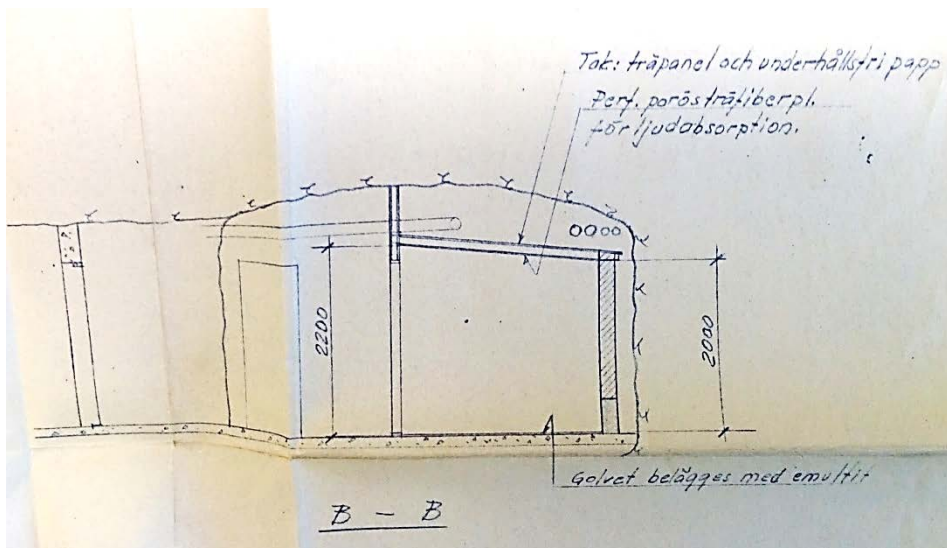 Tak: träpanel och underhållsfri papp
Perf. porösträfiberpl.
för ljudabsorption.
2200
2000
Golvet belägges med emultit
B - B